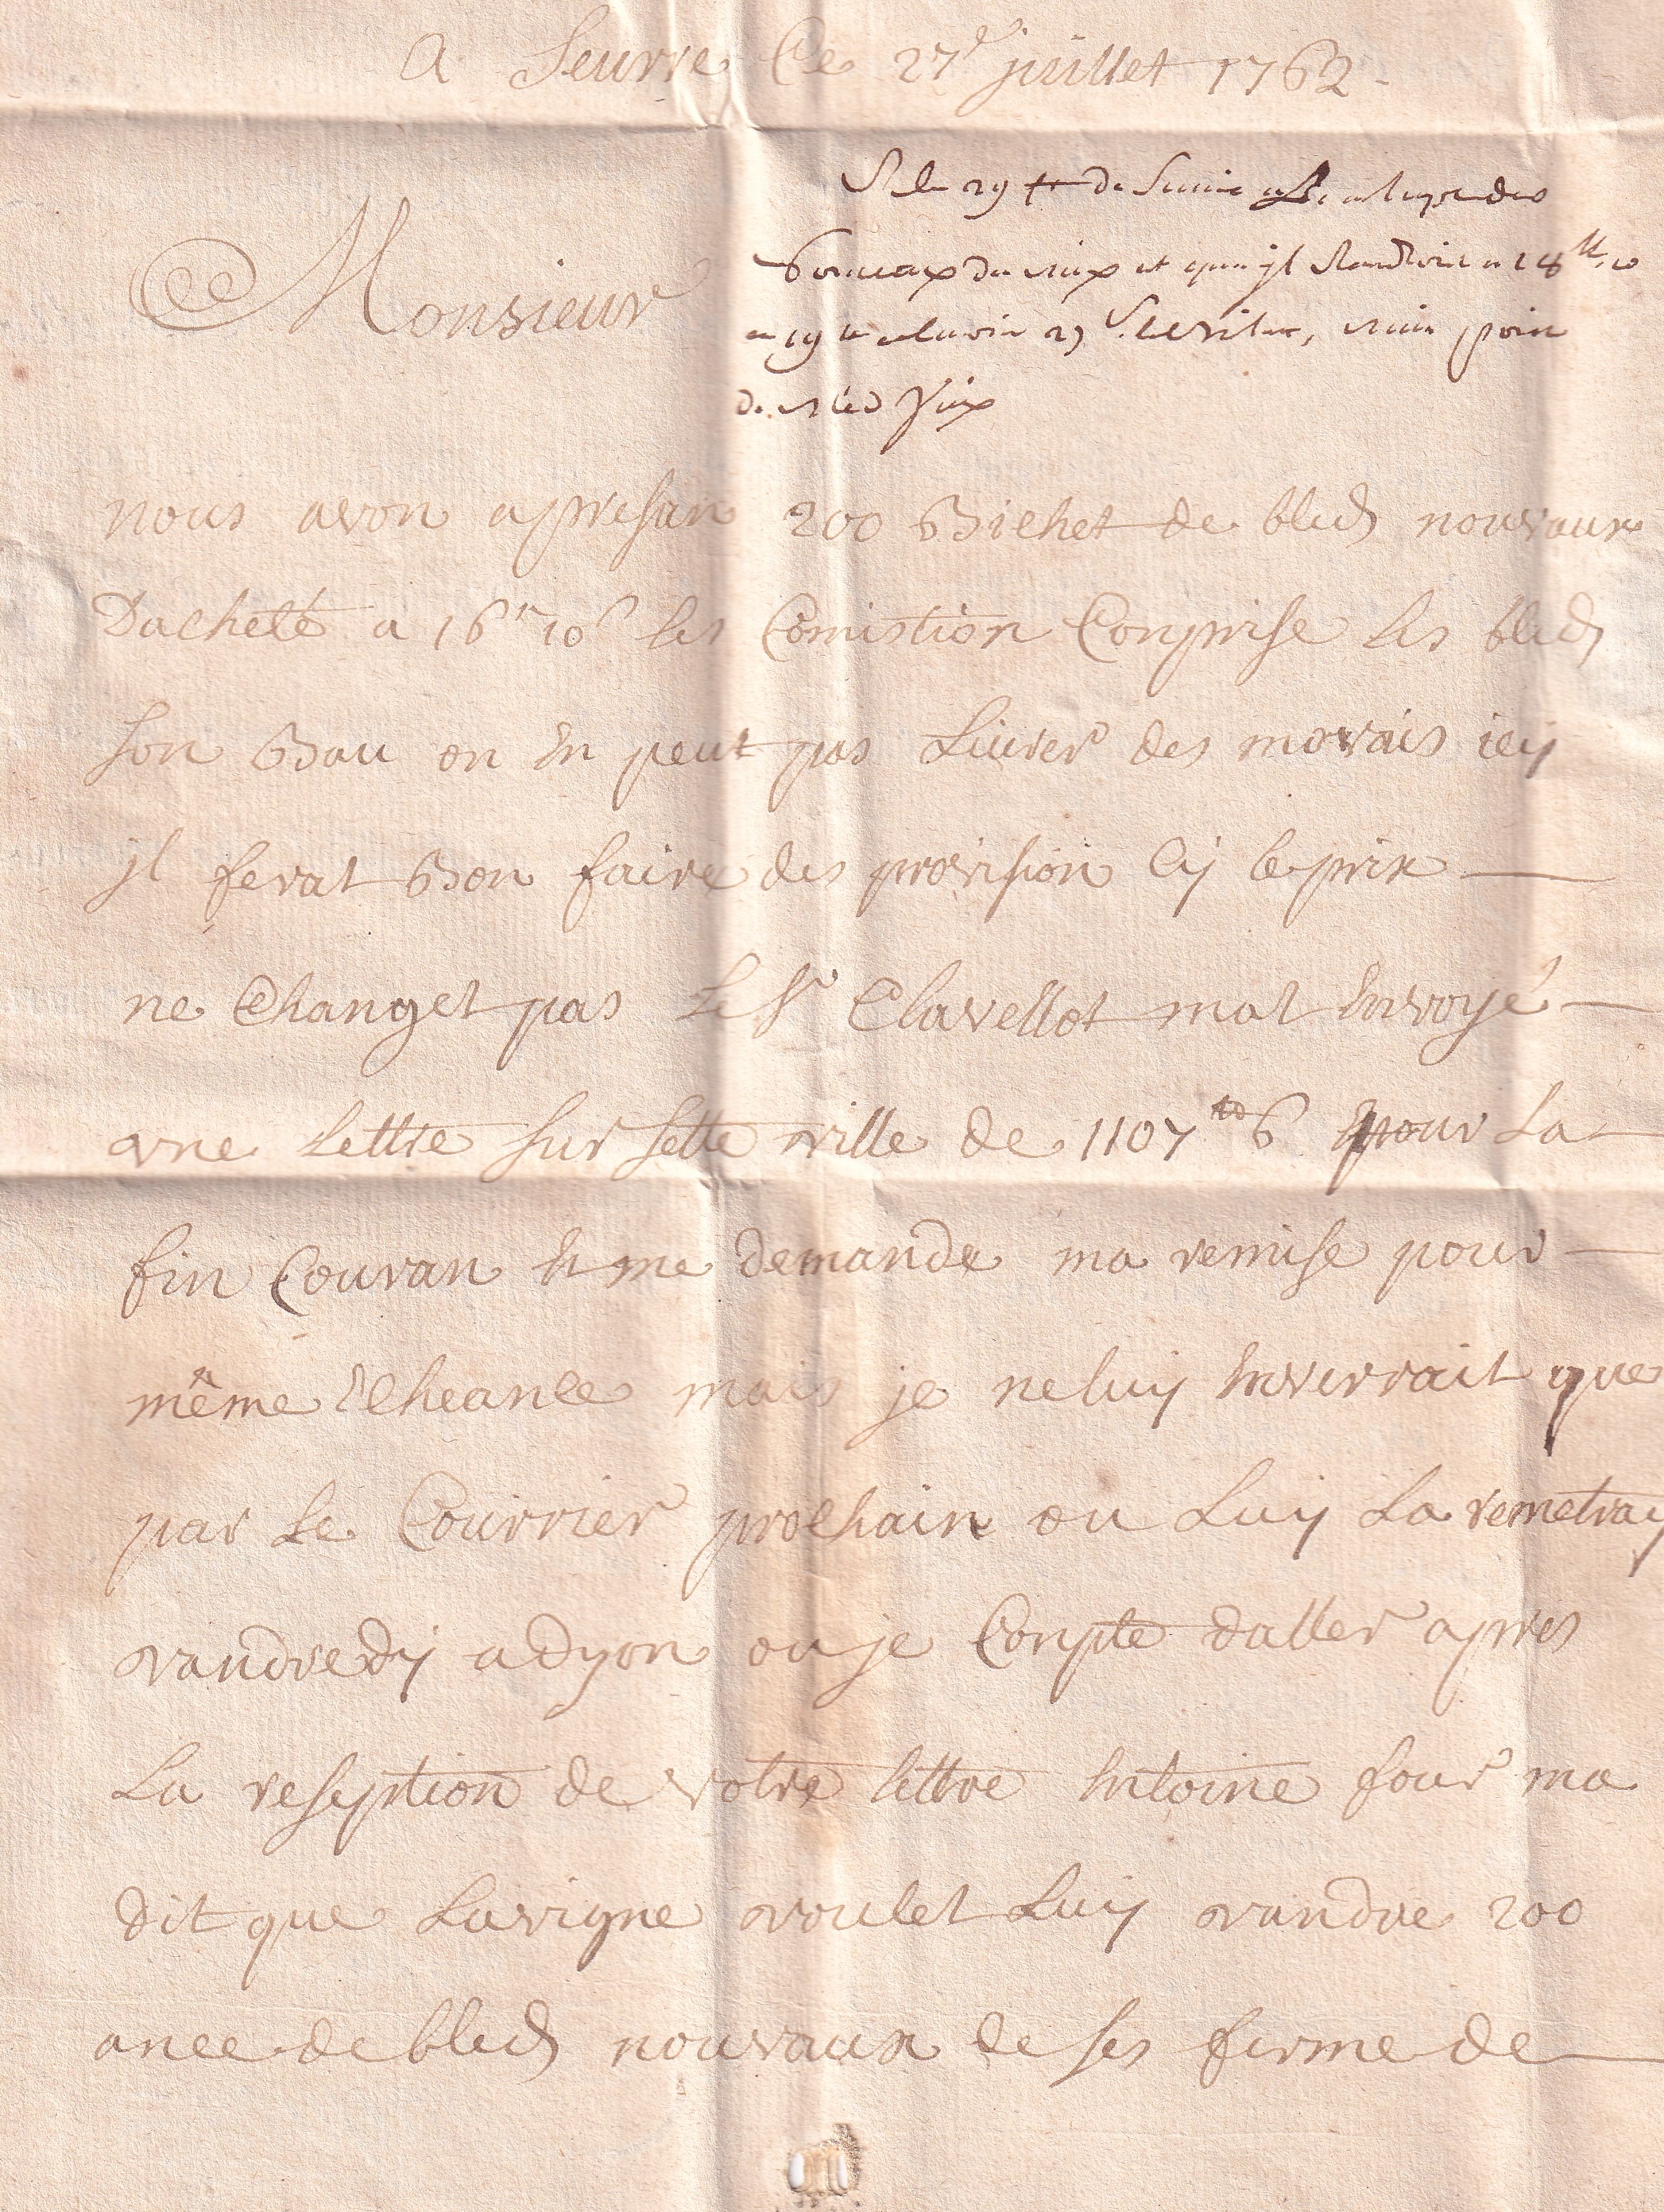 a Seurre Ce 27e juillet 1762
Monsieur
R le 29
et que jl
point
de bled vieux
nous avon apresan 200 Bichet de bleds nouvaux
Dacheté a 16tt 10s les Comistion Conprise les bleds
son Bau on en peut pas Livrer des movais icy
jl ferat Bon faire des provision Cy le prix
ne Changet pas Le Sr Clavellot mat Envoyé
une Lettre sur sette ville de 1107tt 6 pour La
fin Couran et me demande ma remise pour
même Echeance mais je ne luy Enverrait que
par Le Courrier prochain ou Luy La remetray
vandredy a Dyon ou je Conpte daller apres
La reseption de votre lettre Entoine four ma
dit que Lavigne voulet Luy vandre 200
anee de bleds nouvaux de ses ferme de